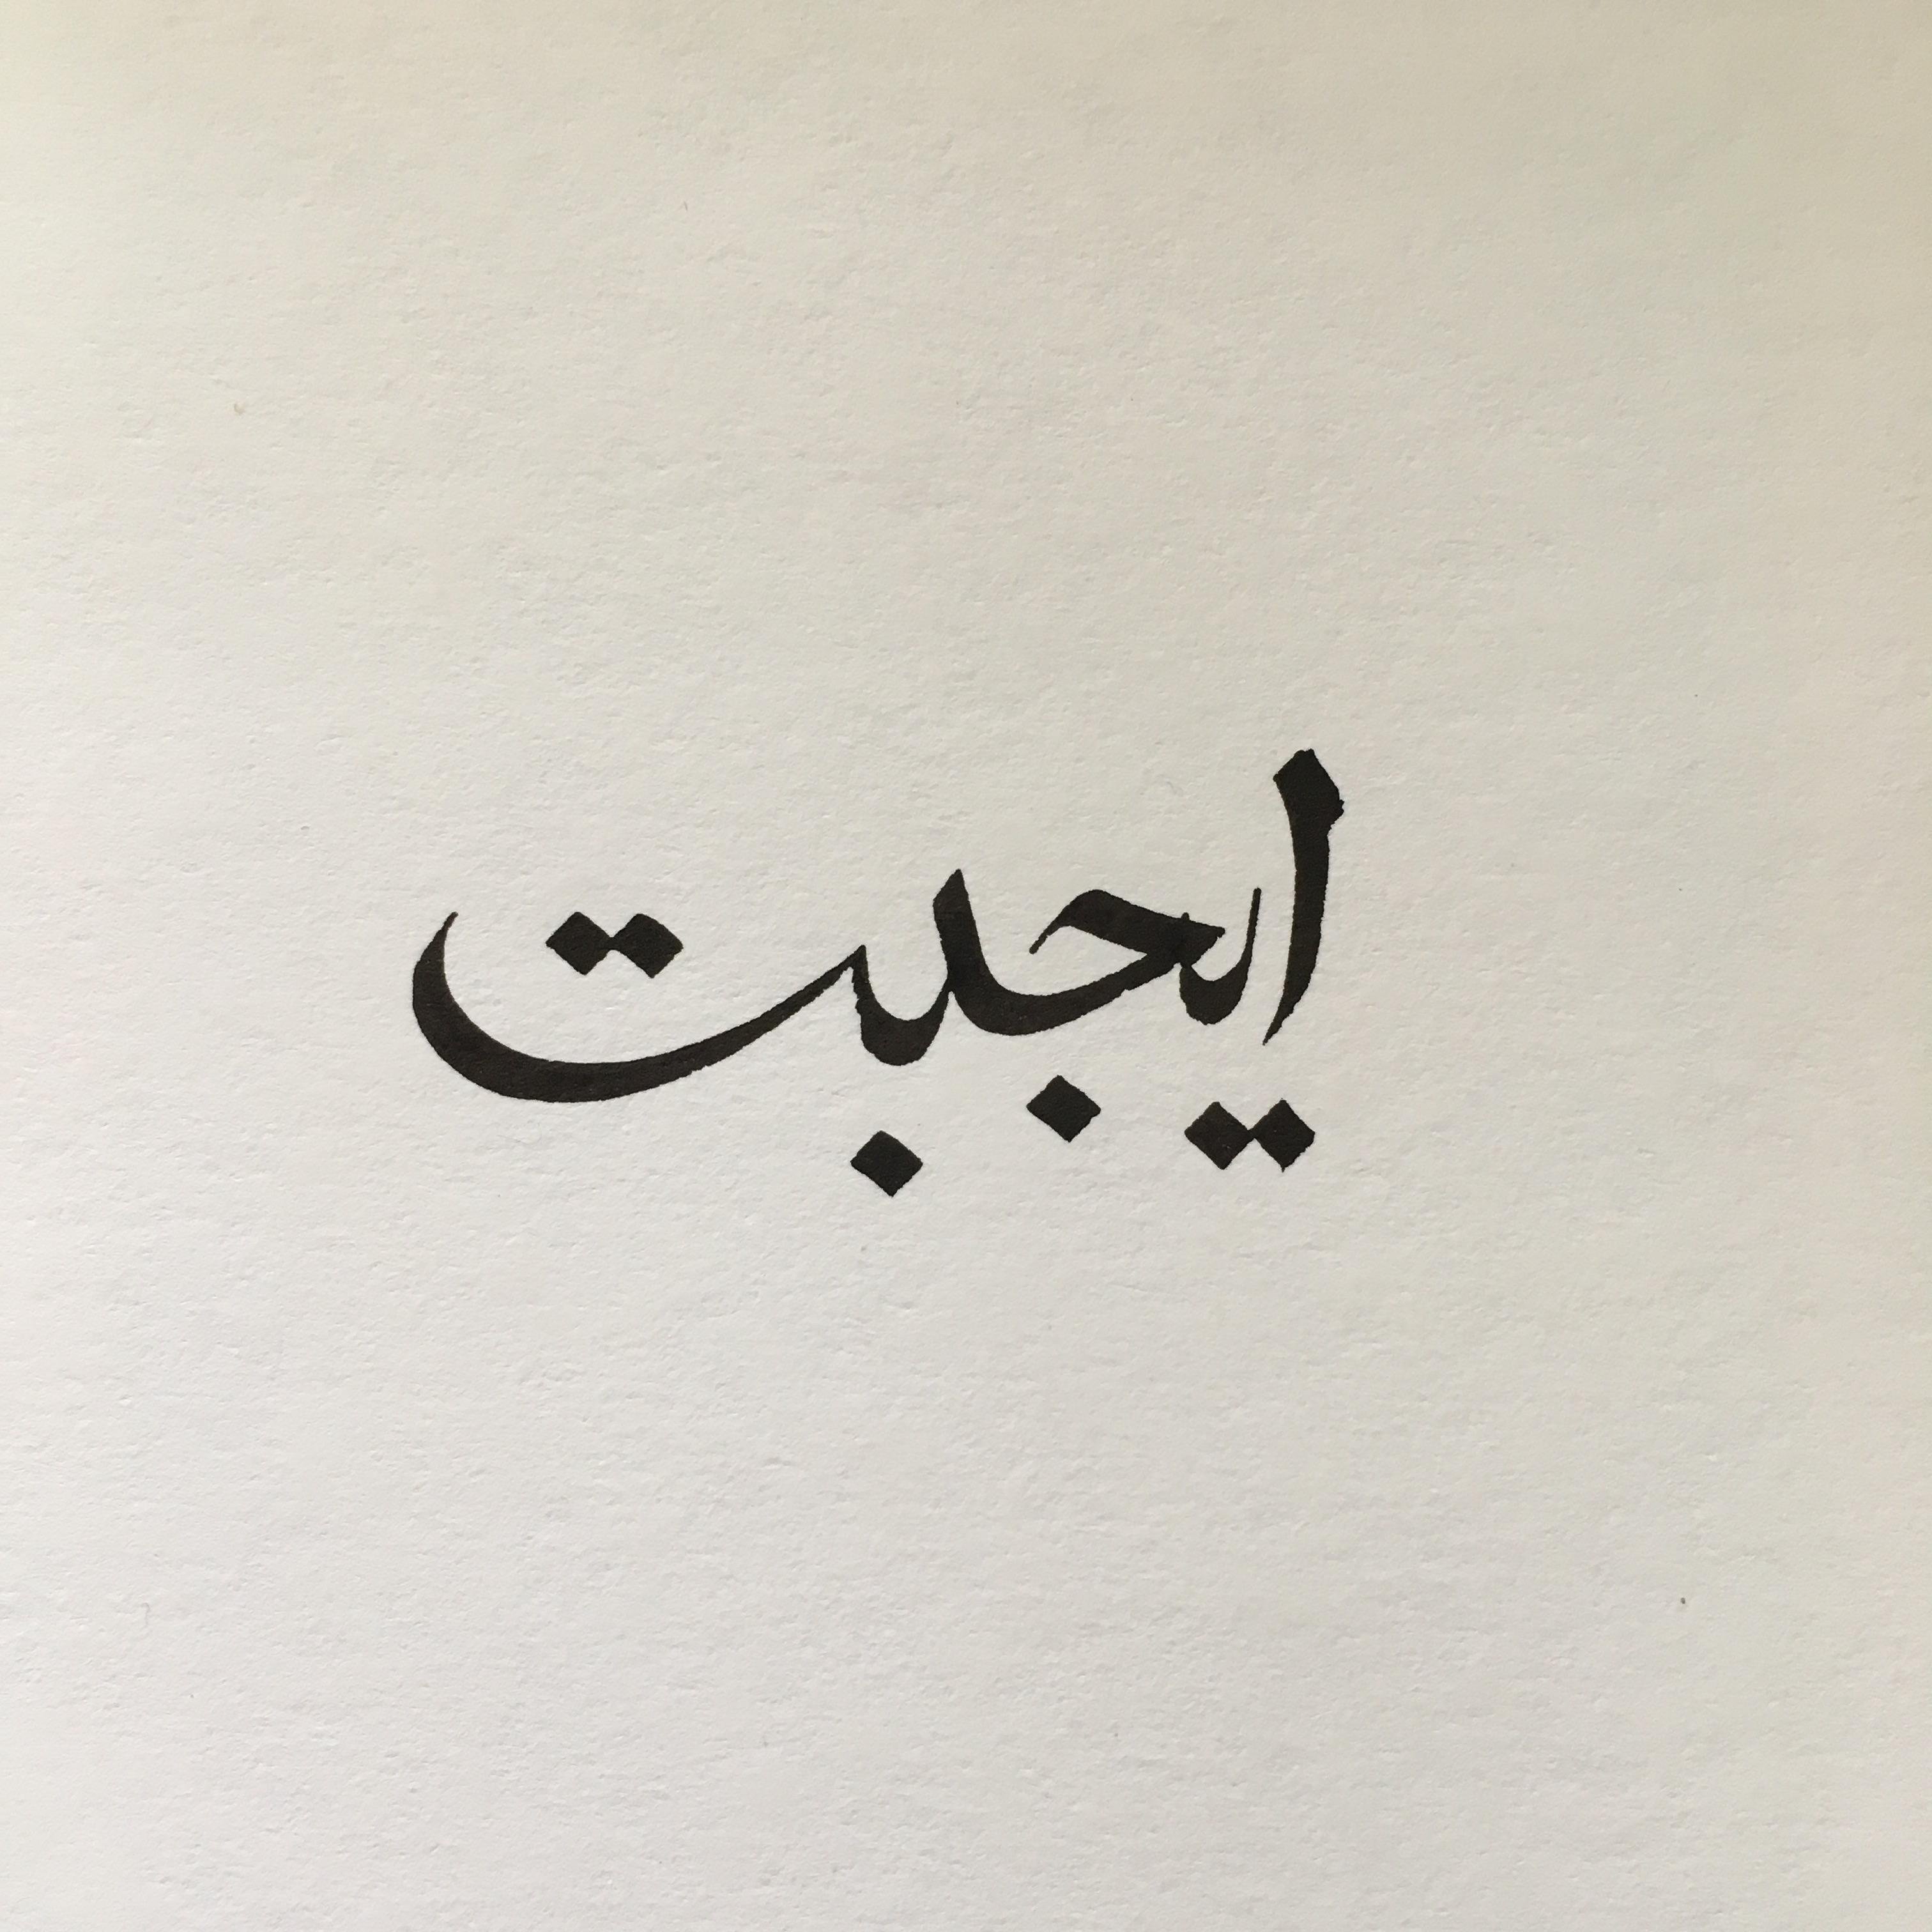 ايجبت